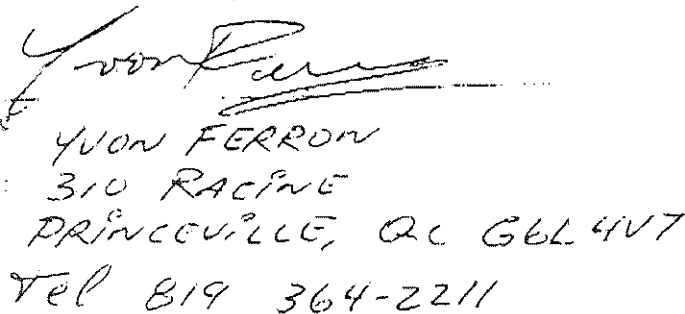 Yvon Ferron
YVON FERRON
310 RACINE
PRINCEVILLE, QC G6L 4V7
Tel 819 364-2211